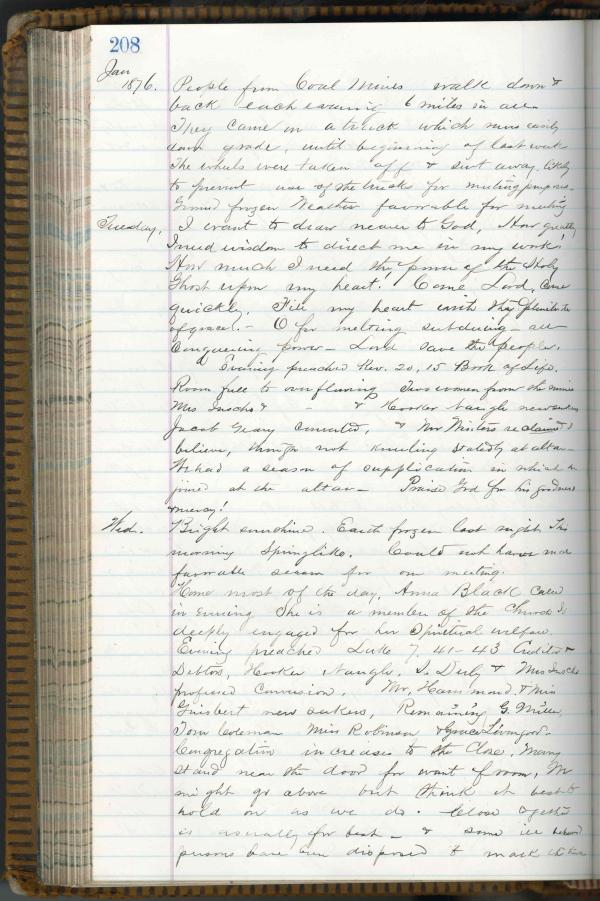 208
Jan
1876. People from Coal Mines walk down &
back each evening 6 miles in all
They came in a truck which runs easily
down grade, until beginning of last week
The wheels were taken off & sent away. likely
to prevent use of the trucks for meeting purposes.
Ground frozen Weather favorable for meeting
Tuesday, I want to draw nearer to God, How greatly
I need wisdom to direct me in my work!
How much I need the power of the Holy
Ghost upon my heart! Come Lord, come
quickly, Fill my heart with thy plenitude
of grace! - O for melting, subduing - all
Conquering power - Lord save the people.
Evening preached Rev. 20, 15 Book of Life.
Room full to overflowing Two women from the mine
Mrs & - & Hooker Naugle new seekers
Jacob Geary converted, & reclaimed I
believe, though not kneeling statedly at altar -
We had a season of supplication in which he
joined at the altar - Praise God for his goodness
& mercy!
Wed. Bright sunshine. Earth frozen last night This
morning Springlike. Could not have more
favorable season for our meeting.
Home most of the day, Anna Black called
in evening She is a member of the Church &
deeply engaged for her Spiritual welfare
Evening preached Luke 7, 41-43 Creditor &
Debtors, Hooker Naugle, & Mrs
professed conversion. Mr, Hammond. & Miss
new seekers, Remaining G. Miller,
Tom Coleman Miss Robinson & Grace
Congregation increases to the close. Many
stand near the door for want of room, We
might go above but think it best to
hold on as we do. Close together
is usually for best - & some ill behaved
persons have been disposed to